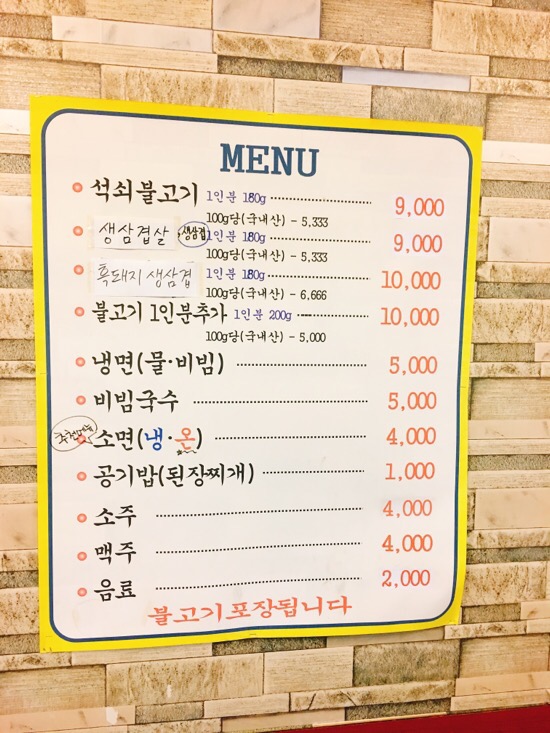 MENU
석쇠불고기 1인분 180g 9,000
100g당(국내산) - 5,333
생삼겹살 생삼겹 1인분 180g 9,000
100g당(국내산) - 5,333
흑돼지 생삼겹 1인분 180g 10,000
100g당(국내산) - 6,666
불고기 1인분추가 1인분 200g 10,000
100g당(국내산) - 5,000
냉면(물·비빔) 5,000
비빔국수 5,000
소면(냉·온) 4,000
공기밥(된장찌개) 1,000
소주 4,000
맥주 4,000
음료 2,000
불고기포장됩니다